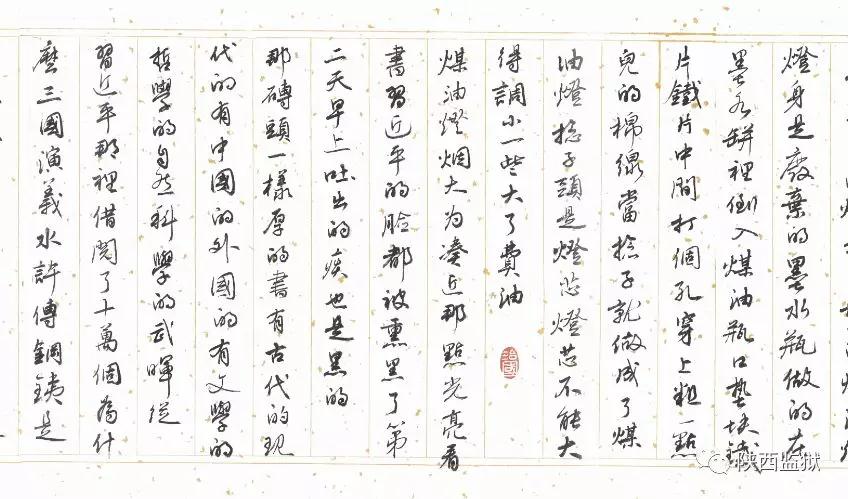 燈身是廢棄的墨水瓶做的在
墨水缾裡倒入煤油瓶口垫块鐵
片鐵片中間打個孔穿上粗一點
兒的棉線當捻子就做成了煤
油燈捻子頭是燈芯燈芯不能大
得調小一些大了費油
煤油燈烟大为湊近那點光亮看
書習近平的脸都被熏黑了第
二天早上吐出的痰也是黑的
那磚頭一樣厚的書有古代的现
代的有中國的外國的有文學的
哲學的自然科學的武暉從
習近平那裡借閱了十萬個為什
麼三國演義水許傳鋼鐵是
陕西监狱